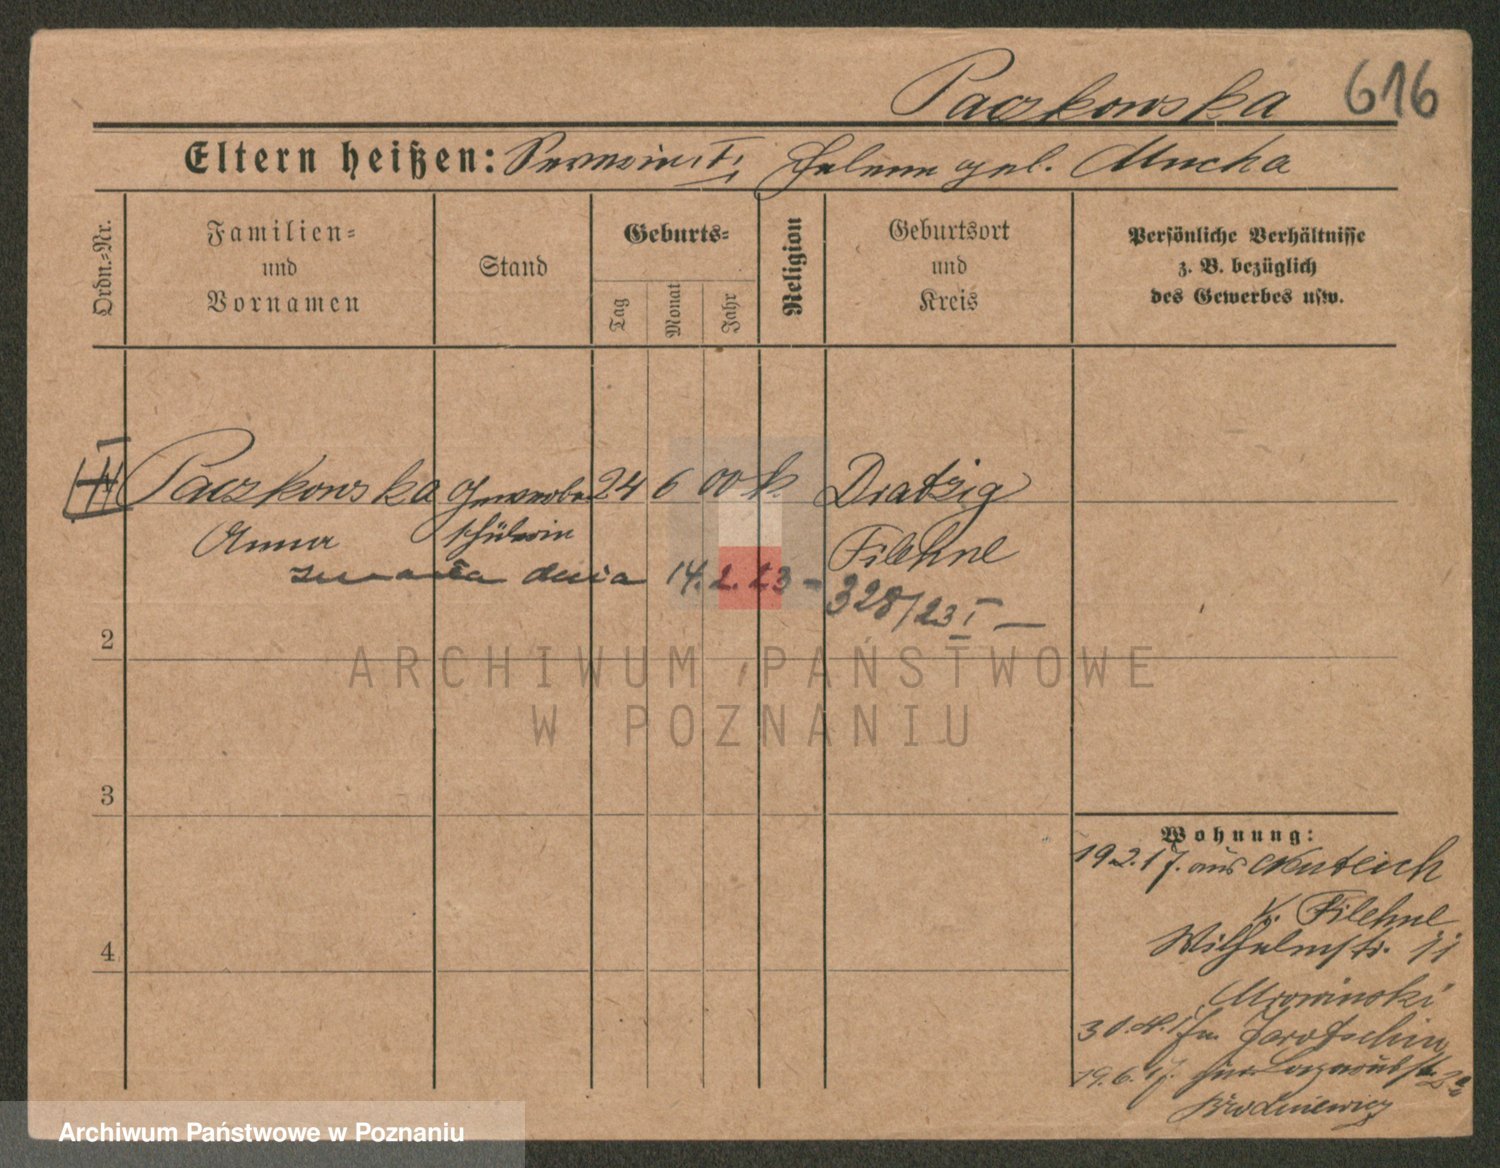 Paczkowska 616
Eltern heißen: Severin u. Helene geb. Mucha
Ordn.-Nr.
Familien-
und
Vornamen
Stand
Geburts-
Tag
Monat
Jahr
Religion
Geburtsort
und
Kreis
Persönliche Verhältnisse
z. B. bezüglich
des Gewerbes usw.
Paczkowska Gewerbe 24 6 00 k. Dratzig
Anna schülerin Filehne
zmarła dnia 14.2.23 - 328/23 I —
2
ARCHIWUM PAŃSTWOWE
W POZNANIU
3
4
Wohnung:
19.2.17. aus
K. Filehne
Wilhelmstr. 11
Mrowinski
30.4.17 n. Jarotschin
19.6.17.
Archiwum Państwowe w Poznaniu